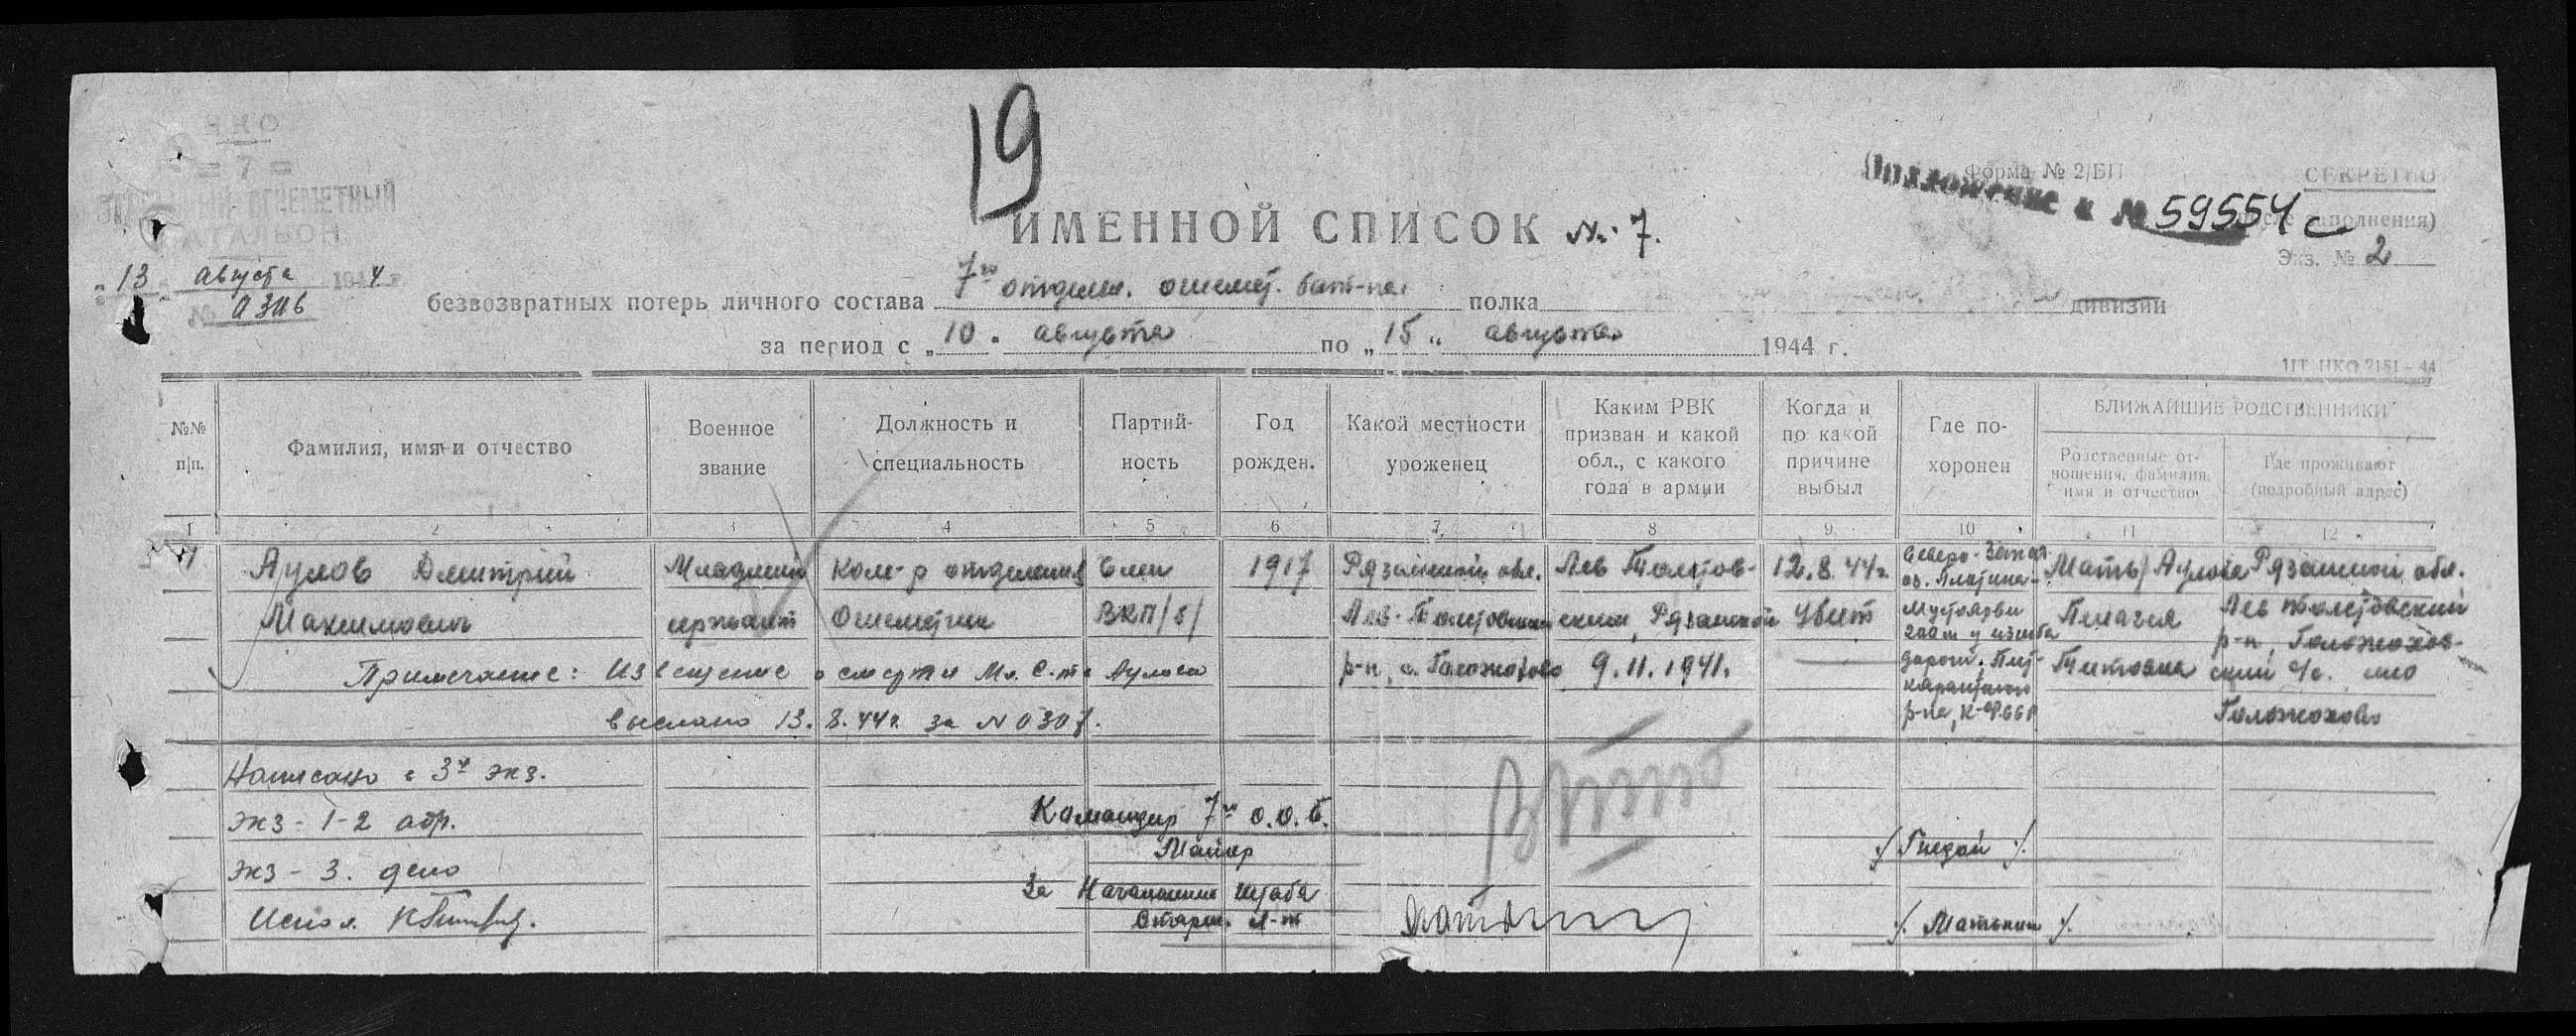 19
НКО
= 7 =
ОГНЕМЕТНЫЙ
БАТАЛЬОН
"13" августа 1944 г.
№ 0306
Форма № 2/БП
СЕКРЕТНО
(после заполнения)
Приложение к № 59554с
Экз. № 2
ИМЕННОЙ СПИСОК № 7.
безвозвратных потерь личного состава 7го отдельн. огнемет. бат-на полка дивизии
за период с „10" августа по „15" августа 1944 г.
ЦТ НКО 2151—44
№№ п/п.
Фамилия, имя и отчество
Военное звание
Должность и специальность
Партий-
ность
Год рожден.
Какой местности уроженец
Каким РВК
призван и какой
обл., с какого
года в армии
Когда и
по какой
причине
выбыл
Где по-
хоронен
БЛИЖАЙШИЕ РОДСТВЕННИКИ
Родственные от-
ношения, фамилия,
имя и отчество
Где проживают
(подробный адрес)
1 2 3 4 5 6 7 8 9 10 11 12
1 Аулов Дмитрий
Максимович
Младший
сержант
Ком-р отделения
Огнеметчик
Член
ВКП/б/
1917
Рязанской обл.
Лев-Толстовский
р-н, с. Головохово
Лев Толстов-
ским, Рязанской
9.11.1941.
12.8.44г.
Убит
Северо-Запад.
оз.
р-на, К-Ф ССР
Мать/Аулова
Пелагея
Титовна
Рязанской обл.
Лев Толстовский
р-н,
ский с/с.
Примечание: Извещение о смерти Мл. С-та Аулова
выслано 13.8.44г. за № 0307.
Написано в 3х экз.
экз - 1-2 адр.
экз - 3. дело
Испол.
Командир 7го О.О.Б.
Майор
/Гнедой/.
За Начальника штаба
Старш. л-т
/. Матькин /.